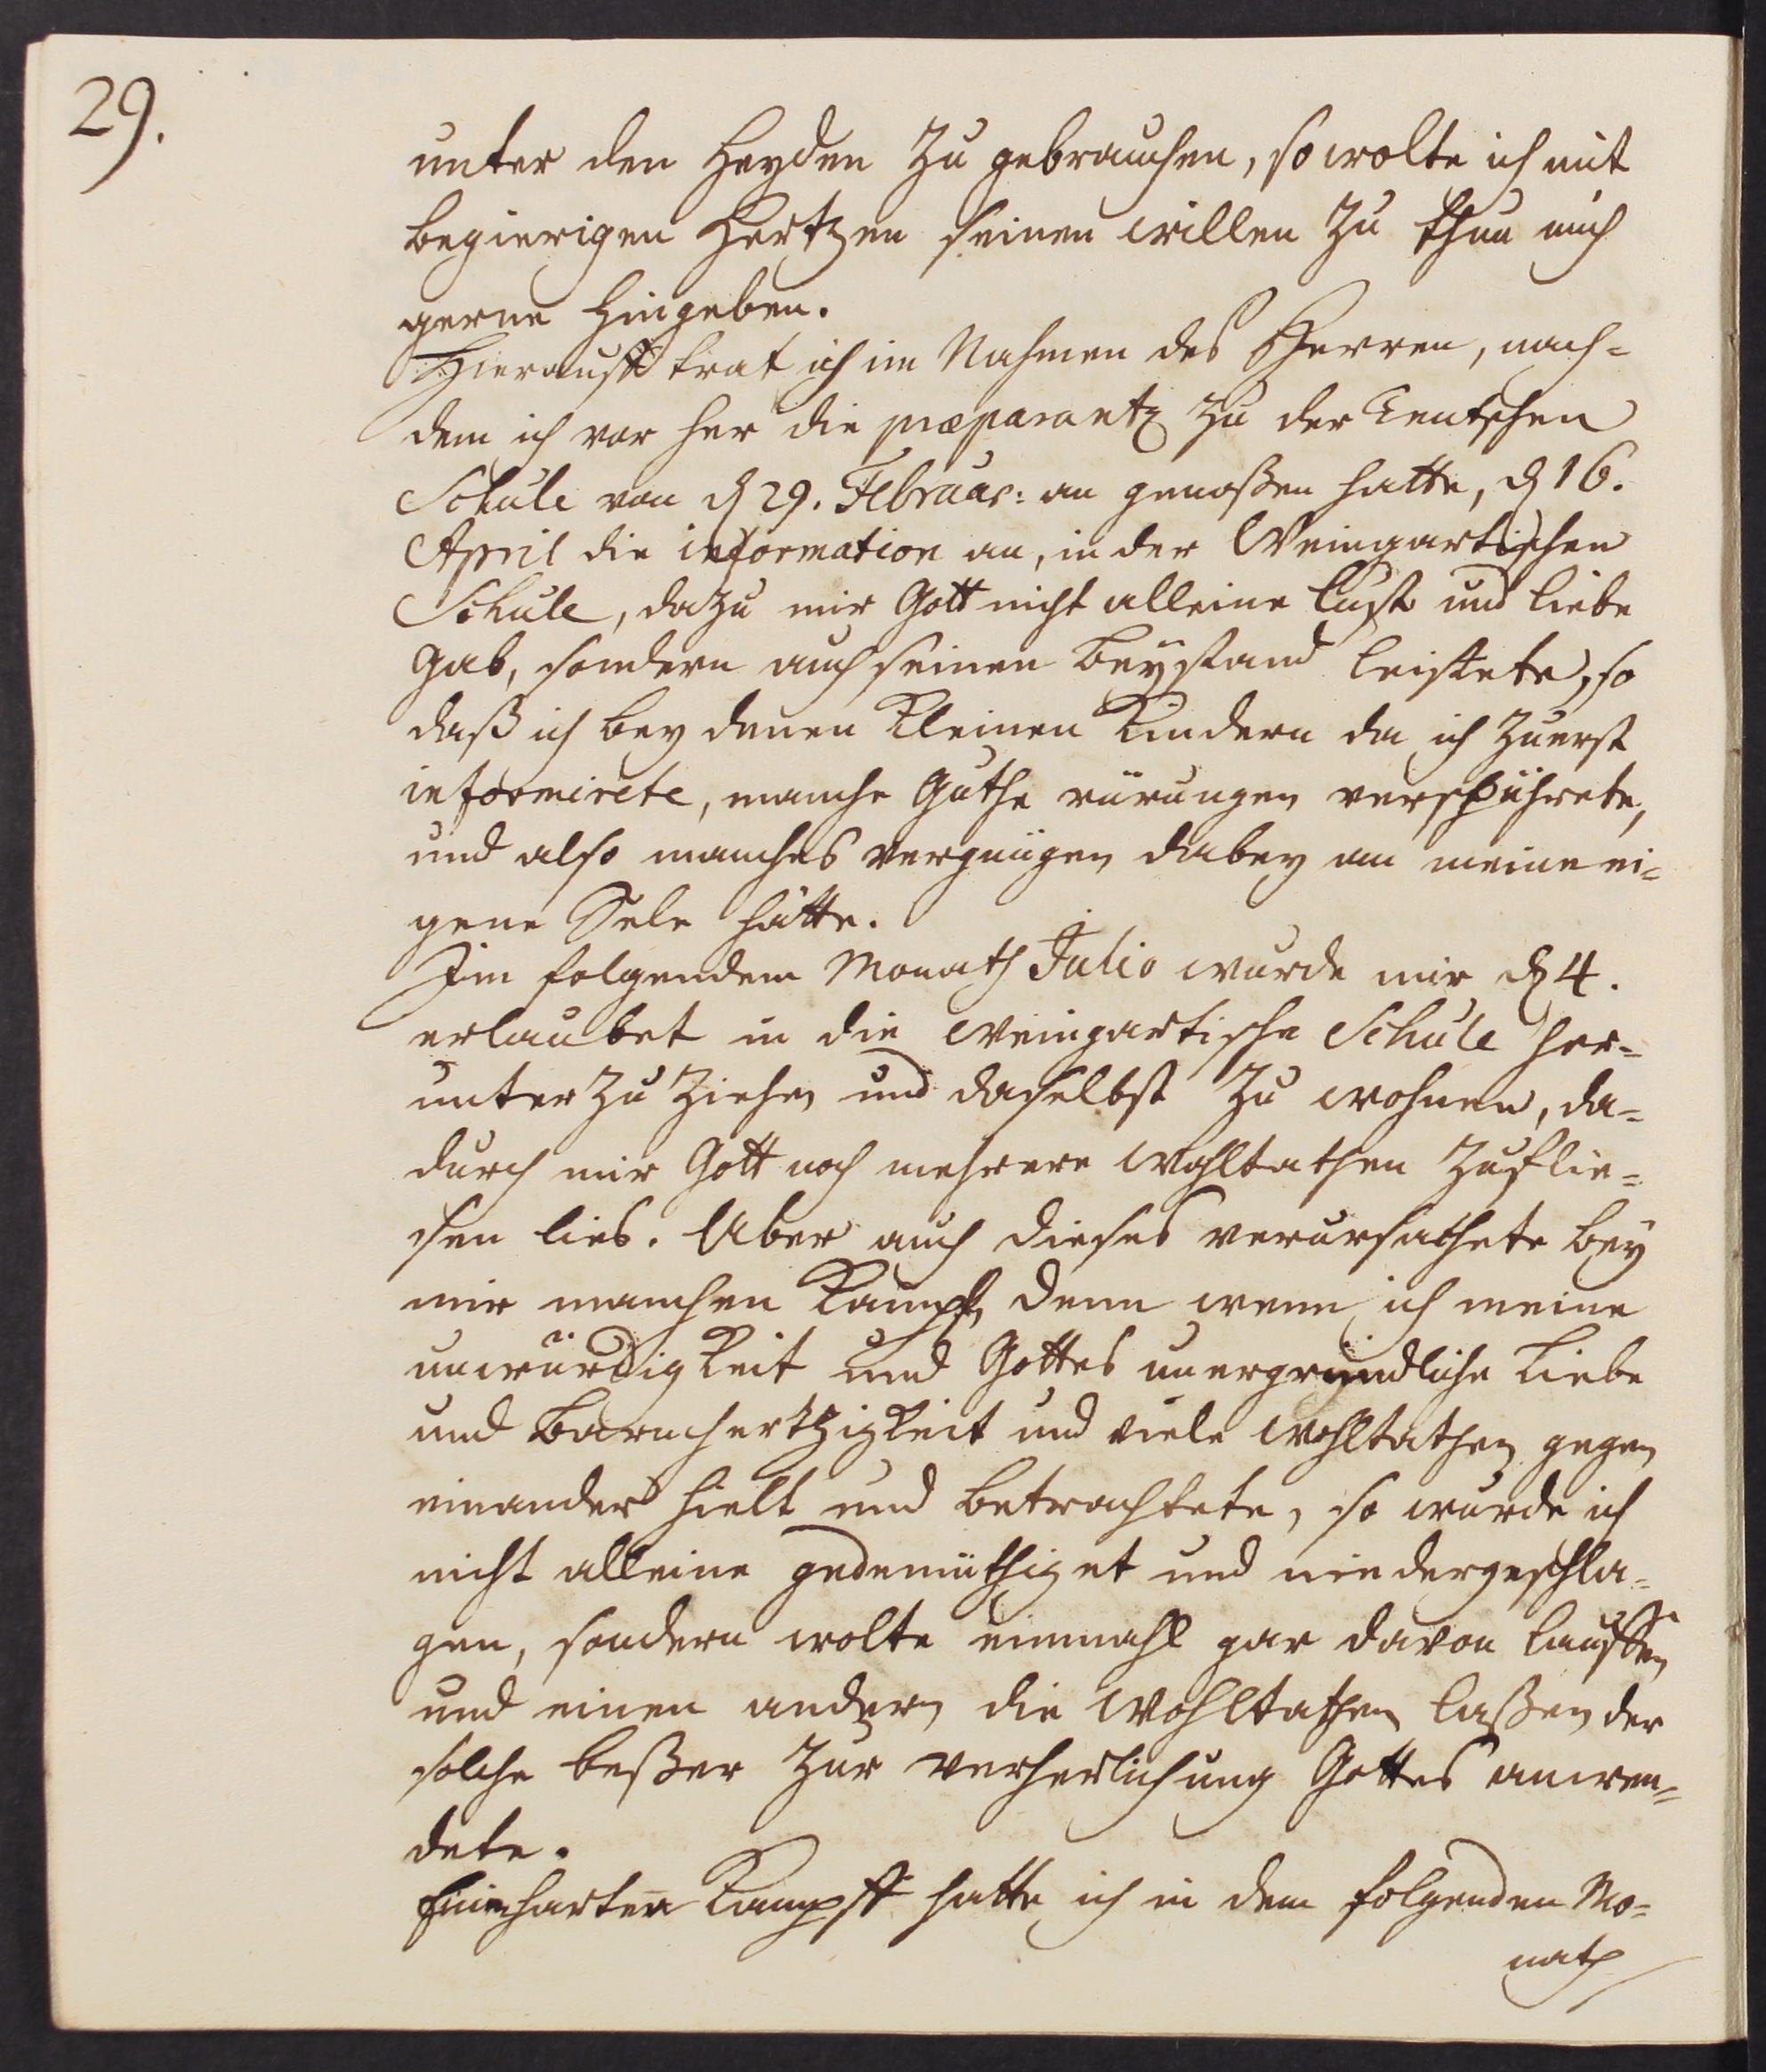 29.
unter den Heyden zu gebrauchen, so wolte ich mit
begierigen Hertzen seinen willen zu thun mich
gerne hingeben.
Hierauff trat ich im Nahmen des Herren, nach=
dem ich vor her die præparantz zu der Teutschen
Schule von d 29. Februar: an genoßen hatte, d 16.
April die information an, in der Weingartischen
Schule, dazu mir Gott nicht alleine lust und liebe
gab, sondern auch seinen beystand leistete, so
daß ich bey denen kleinen Kindern da ich zuerst
informirete, manche Guthe rürungen verspührete,
und also manches vergnügen dabey an meine ei=
gene Sele hatte.
Im folgendem Monath Julio wurde mir d 4.
erlaubet in die weingartische Schule her=
unter zu ziehen und daselbst zu wohnen, da=
durch mir Gott noch mehrere wohltathen zuflie=
sen lies. Aber auch dieses verursachete bey
mir manchen Kampff, denn wenn ich meine
unwürdigkeit und Gottes unergründliche Liebe
und Barmhertzigkeit und viele wohltathen gegen
einander hielt und betrachtete, so wurde ich
nicht alleine gedemüthiget und niedergeschla=
gen, sondern wolte einmahl gar davon lauffen
und einen andern die wohltathen laßen der
solche beßer zur verherlichung Gottes anwen=
dete.
Ein harten Kampff hatte ich in dem folgenden Mo=
nath